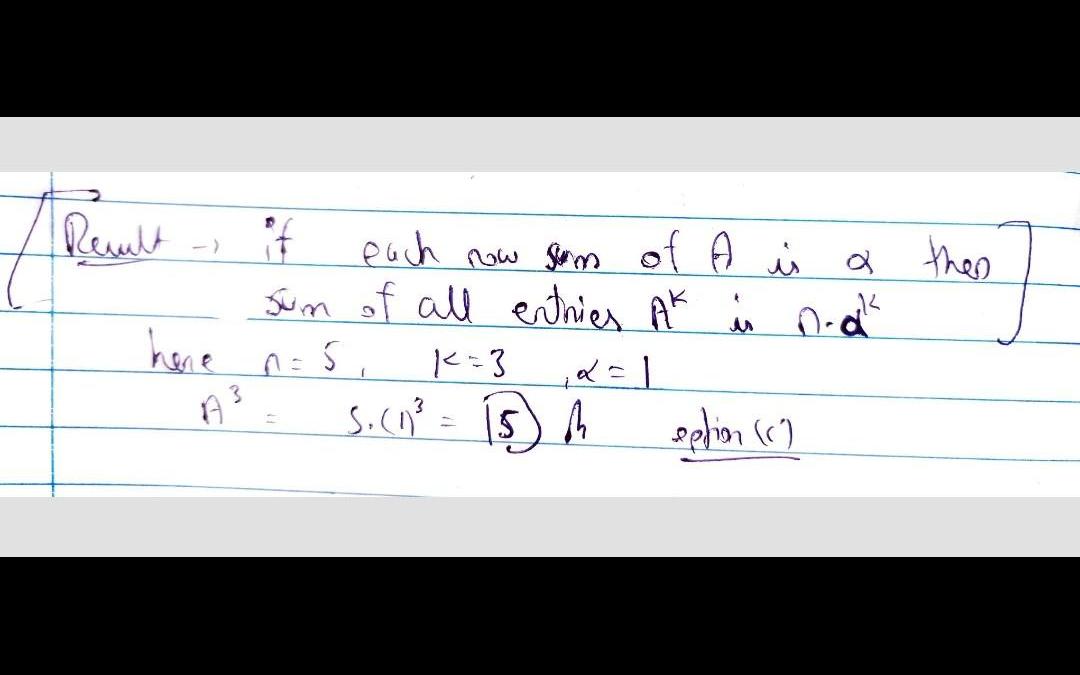 Result → if each row sum of A is α then
sum of all entries A^k is n·α^k
here n = 5, k = 3, α = 1
A³ = 5·(1)³ = 5 option (c)